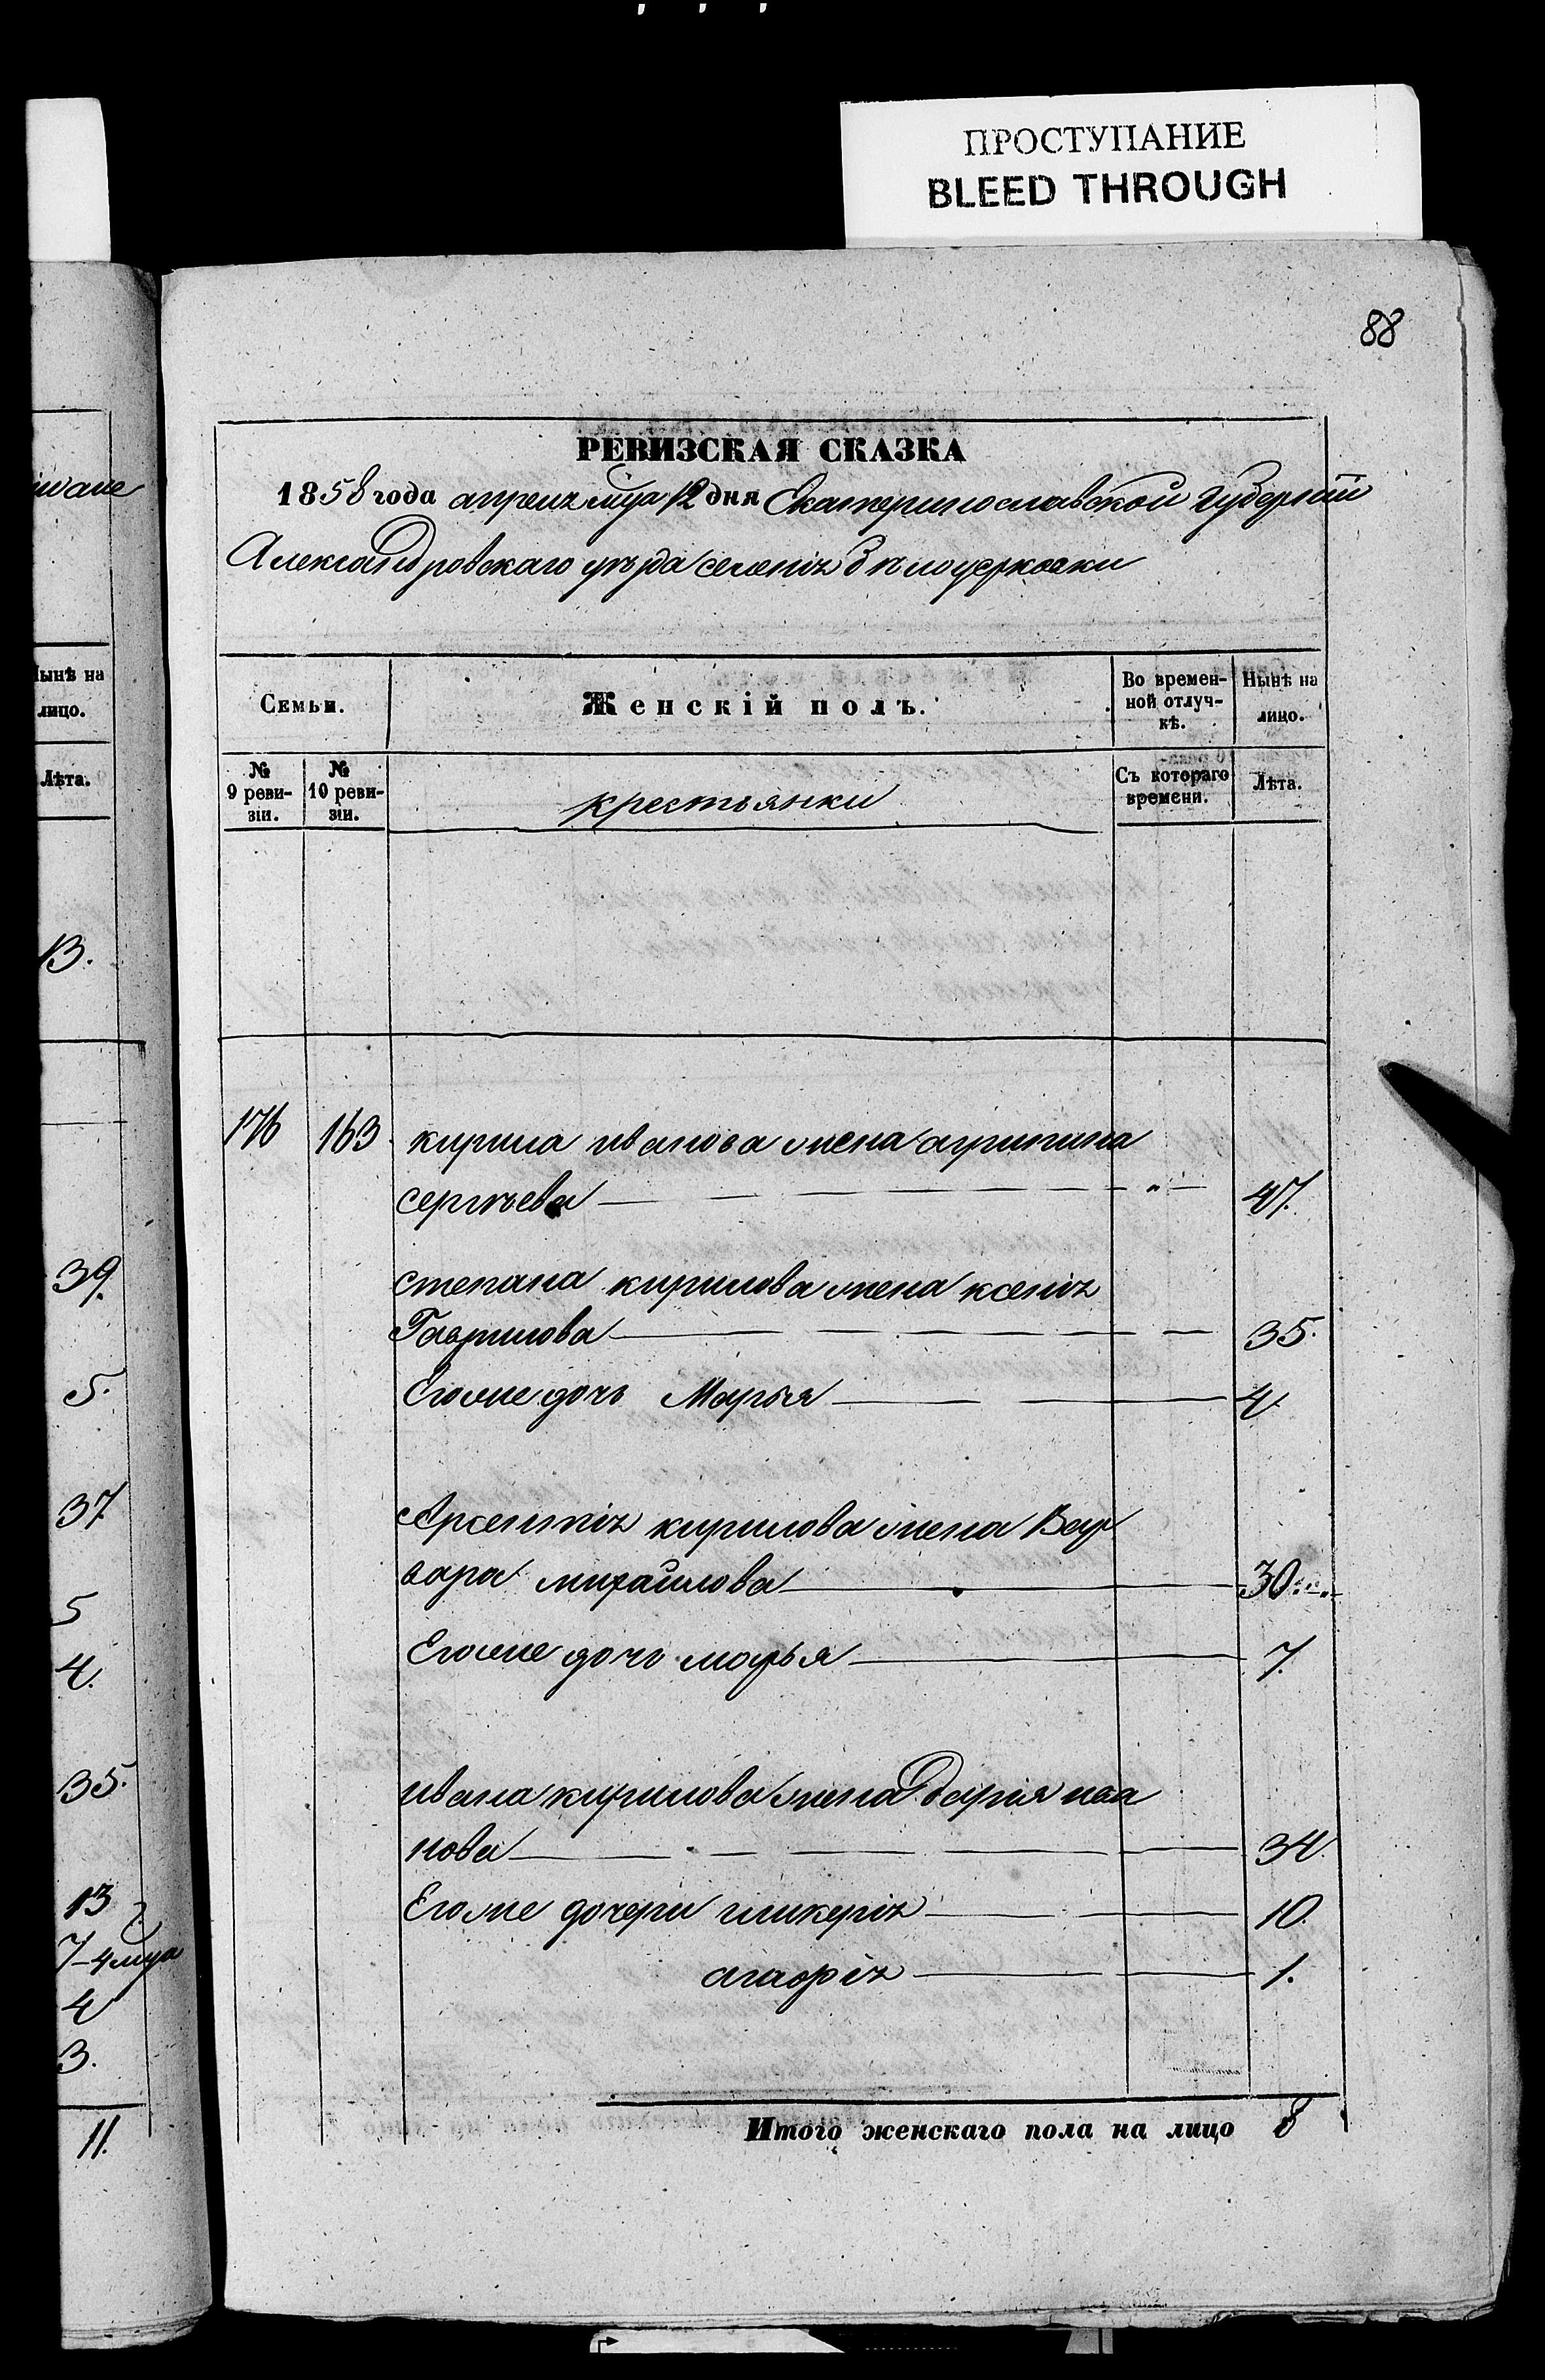 ПРОСТУПАНИЕ
BLEED THROUGH
88
РЕВИЗСКАЯ СКАЗКА
1858 года апреля мца 12 дня Екатеринославской губернии
Александровскаго уѣзда селенія Бѣлоцерковки
Семьи.
Женскій полъ.
Во времен-
ной отлуч-
кѣ.
Нынѣ на
лицо.
№
9 реви-
зіи.
№
10 реви-
зіи.
крестьянки
Съ котораго
времени.
Лѣта.
176 163 кирила иванова жена агрипина
сергѣева 47.
степана кирилова жена ксенія
Гаврилова 35.
Егоже дочь Марья 4
Арсентія кирилова жена Вар
вара михайлова 30
Егоже дочь марья 7.
ивана кирилова жена дария ива
нова 34.
Егоже дочери гликерія 10.
агафія 1.
Итого женскаго пола на лицо 8
Нынѣ на
лицо.
Лѣта.
13.
39.
5.
37
5
4.
35.
13
7-4 мца
4
3.
11.